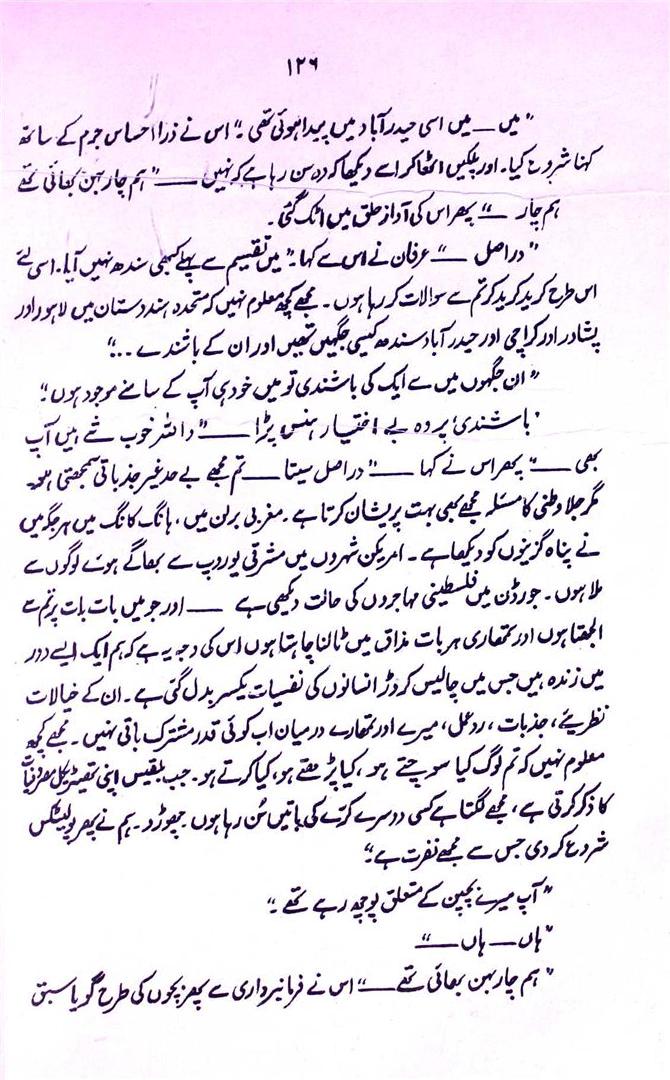 ۱۲۶
"میں — میں اسی حیدرآباد میں پیدا ہوئی تھی۔" اس نے ذرا احساس جرم کے ساتھ
کہنا شروع کیا۔ اور پلکیں اٹھا کر اسے دیکھا کہ وہ سن رہا ہے کہ نہیں — "ہم چار بہن بھائی تھے
ہم چار —" پھر اس کی آواز حلق میں اٹک گئی۔
"دراصل —" عرفان نے اس سے کہا۔ "میں تقسیم سے پہلے کبھی سندھ نہیں آیا۔ اسی لئے
اس طرح کرید کرید کر تم سے سوالات کر رہا ہوں۔ مجھے کچھ معلوم نہیں کہ متحدہ ہندوستان میں لاہور اور
پشاور اور کراچی اور حیدرآباد سندھ کیسی جگہیں تھیں اور ان کے باشندے ..."
"ان جگہوں میں سے ایک کی باشندی تو میں خود ہی آپ کے سامنے موجود ہوں"
'باشندی' پر وہ بے اختیار ہنس پڑا — "واللہ خوب شے ہیں آپ
بھی —" پھر اس نے کہا — "دراصل سیتا — تم مجھے بے حد غیر جذباتی سمجھتی ہو۔
مگر جلاوطنی کا مسئلہ مجھے بھی بہت پریشان کرتا ہے۔ مغربی برلن میں، ہانگ کانگ میں ہر جگہ میں
نے پناہ گزینوں کو دیکھا ہے۔ امریکن شہروں میں مشرقی یوروپ سے بھاگے ہوئے لوگوں سے
ملا ہوں۔ جورڈن میں فلسطینی مہاجروں کی حالت دیکھی ہے — اور جو میں بات بات پر تم سے
الجھتا ہوں اور تمھاری ہر بات مذاق میں ٹالنا چاہتا ہوں اس کی وجہ یہ ہے کہ ہم ایک ایسے دور
میں زندہ ہیں جس میں چالیس کروڑ انسانوں کی نفسیات یکسر بدل گئی ہے۔ ان کے خیالات
نظریئے، جذبات، ردعمل، میرے اور تمھارے درمیان اب کوئی قدر مشترک باقی نہیں۔ مجھے کچھ
معلوم نہیں کہ تم لوگ کیا سوچتے ہو، کیا پڑھتے ہو، کیا کرتے ہو۔ جب بلقیس اپنی تھیٹریکل مصروفیات
کا ذکر کرتی ہے، مجھے لگتا ہے کسی دوسرے کرّے کی باتیں سُن رہا ہوں۔ چھوڑو۔ ہم نے پھر پولیٹکس
شروع کر دی جس سے مجھے نفرت ہے۔"
"آپ میرے بچپن کے متعلق پوچھ رہے تھے۔"
"ہاں — ہاں —"
"ہم چار بہن بھائی تھے —" اس نے فرمانبرداری سے پھر بچوں کی طرح گویا سبق